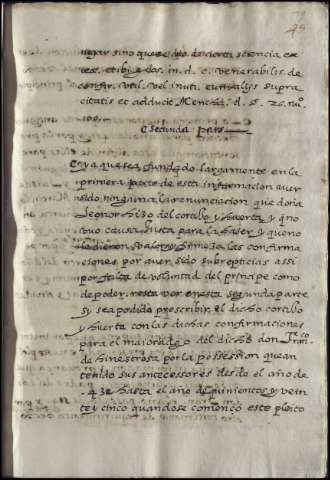 negar sino que se dio de cierta sciencia ex
tex. et ibi glos. in. d. c. venerabilis. de
confir. util. vel inuti. cum alijs supra
citatis et adducit Menchia. d. §. 26. nu.º
100.
Segunda parte
Ya que sea fundado largamente en la
primera parte de esta informacion auer
sido ninguna la renunciacion que doña
leonor hizo del cortijo y huerta y q̃ no
tuvo causa justa para la hazer y que no
pudieron valer ningunas las confirma
ciones por auer sido subrepticias assi
por falta de voluntad del principe como
de poder. resta ver en esta segunda parte
si sea podido prescribir el dicho cortijo
y huerta con las dichas confirmaciones
para el maiorazgo del dicho don Fran.co
de hinestrosa por la possession que an
tenido sus antecessores desde el año de
.432 hasta el año de quinientos y vein
te y cinco quando se començo este pleito